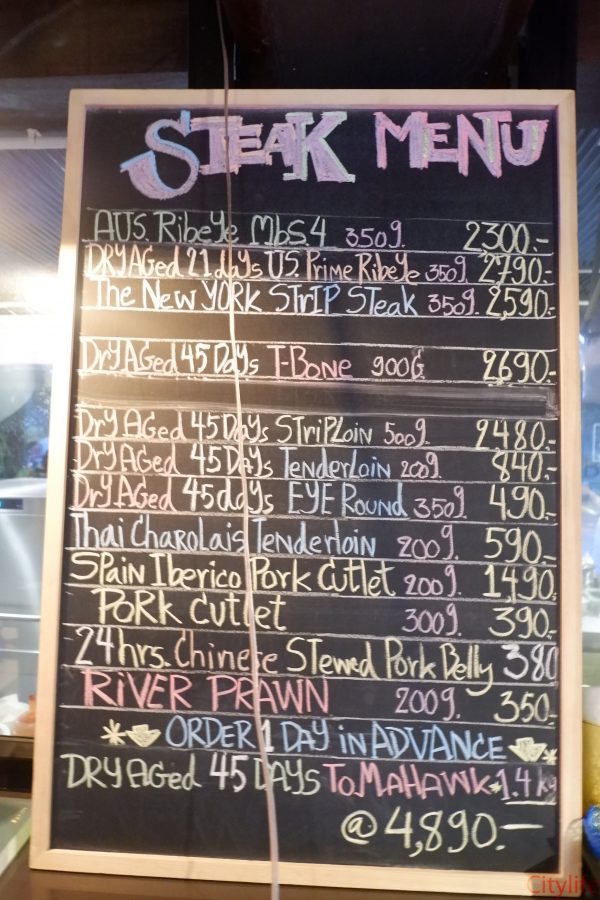 STEAK MENU
AUS. RiBeYe MbS.4 350g. 2300.-
DRY AGed 21 days US. Prime RiBeYe 350g. 2790.-
The New YORK STriP STeak 350g. 2,590.-
DrY AGed 45 DaYs T-BoNe 900G 2690.-
DrY AGed 45 DAYs STriPLoin 500g. 2480.-
DrY AGed 45 DAYs TenderLoin 200g. 840.-
DrY AGed 45 days EYE Round 350g. 490.-
Thai Charolais Tenderloin 200g. 590.-
SPain Iberico Pork CutLet 200g. 1,490.-
PORK CutLet 300g. 390.-
24hrs. Chinese Stewed Pork Belly 380
RiVER PRAWN 200g. 350.-
ORDER 1 DAY in ADVANCE
DRY AGed 45 DAYs ToMAHAWK 1.4 kg
@ 4,890.-
Citylife